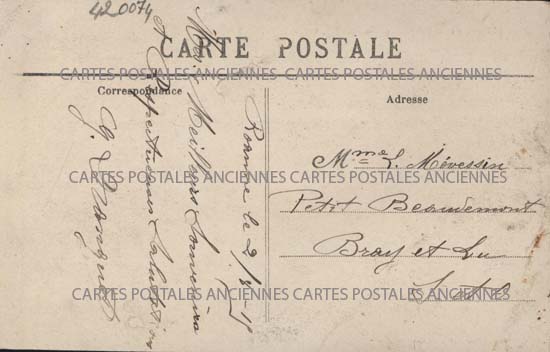 420074
CARTE POSTALE
CARTES POSTALES ANCIENNES CARTES POSTALES ANCIENNES
Correspondance
Adresse
Roanne le 2/
Meilleurs Souvenirs
et Respectueuses Salutations
Mme L. Mévessin
CARTES POSTALES ANCIENNES CARTES POSTALES ANCIENNES
Petit Beaudemont
Bray et Lu
CARTES POSTALES ANCIENNES CARTES POSTALES ANCIENNES